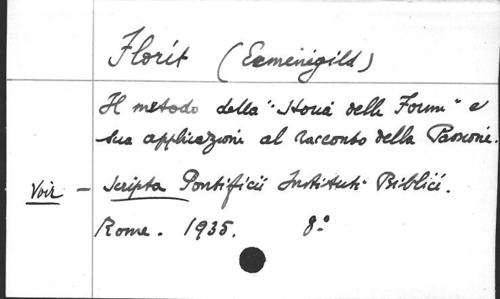 Florit (Ermenigild)
Il metodo della "Storia delle Forme" e
sua applicazione al racconto della Passione.
Voir - Scripta Pontificii Instituti Biblici.
Rome. 1935. 8°